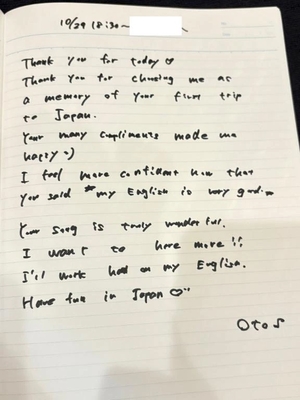 10/29 18:30~
Thank you for today♡
Thank you for choosing me as
a memory of your first trip
to Japan.
Your many compliments made me
happy :)
I feel more confident now that
you said "my English is very good."
Your song is truly wonderful.
I want to here more!!
I'll work had on my English.
Have fun in Japan ♡